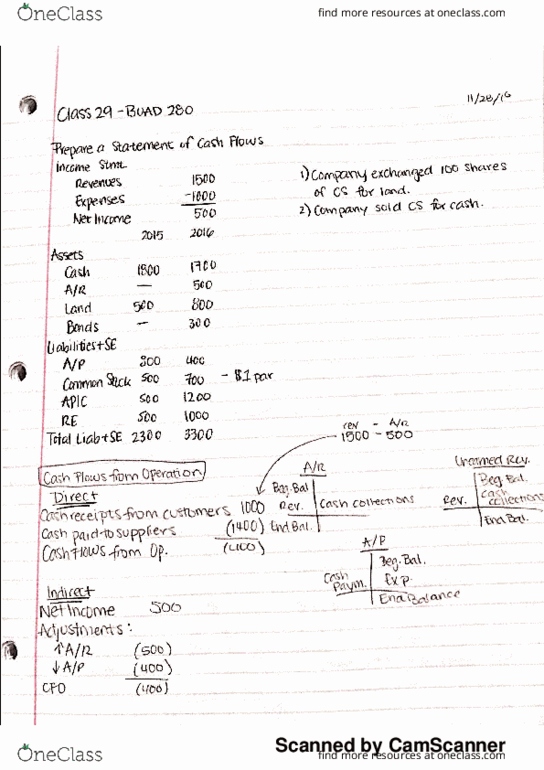 OneClass
find more resources at oneclass.com
11/28/16
Class 29 - BUAD 280
Prepare a Statement of Cash Flows
Income Stmt.
Revenues 1500
Expenses -1000
Net Income 500
1) Company exchanged 100 shares
of CS for land.
2) Company sold CS for cash.
2015 2016
Assets
Cash 1800 1700
A/R — 500
Land 500 800
Bonds — 300
Liabilities + SE
A/P 800 400
Common Stock 500 700 - $1 par
APIC 500 1200
RE 500 1000
Total Liab + SE 2300 3300
rev - A/R
1500 - 500
Cash Flows from Operation
Direct
Cash receipts from customers 1000
Cash paid to suppliers (1400)
Cash Flows from Op. (400)
A/R
Beg. Bal
Rev. Cash collections
End Bal.
Unearned Rev.
Beg. Bal.
Rev. Cash collections
End Bal.
A/P
Beg. Bal.
Cash Paym. Exp.
End Balance
Indirect
Net Income 500
Adjustments:
↑A/R (500)
↓A/P (400)
CFO (400)
Scanned by CamScanner
OneClass
find more resources at oneclass.com